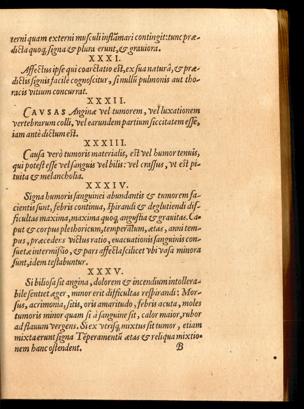 terni quam externi musculi inflāmari contingit: tunc præ-
dicta quoq; signa & plura erunt, & grauiora.
XXXI.
Affectus ipse qui coarctatio est, ex sua naturâ, & præ-
dictis signis facile cognoscitur, si nullū pulmonis aut tho-
racis vitium concurrat.
XXXII.
CAVSAS Anginæ vel tumorem, vel luxationem
vertebrarum colli, vel earundem partium siccitatem esse,
iam antè dictum est.
XXXIII.
Causa verò tumoris materialis, est vel humor tenuis,
qui potest esse vel sanguis vel bilis: vel crassus, vt est pi-
tuita & melancholia.
XXXIV.
Signa humoris sanguinei abundantis & tumorem fa-
cientis sunt, febris continua, spirandi & deglutiendi dif-
ficultas maxima, maxima quoq; angustia & grauitas. Ca-
put & corpus plethoricum, temperatum, ætas, anni tem-
pus, præcedens victus ratio, euacuationis sanguinis con-
suetæ intermissio, & pars affecta scilicet vbi vasa minora
sunt, idem testabuntur.
XXXV.
Si biliosa sit angina, dolorem & incendium intollera-
bile sentiet æger, minor erit difficultas respirandi: Mor-
sus, acrimonia, sitis, oris amaritudo, febris acuta, moles
tumoris minor quam si à sanguine sit, calor maior, rubor
ad flauum vergens. Si ex vtrisq; mixtus sit tumor, etiam
mixta erunt signa Tēperamentū ætas & reliqua mixtio-
nem hanc ostendent.
B